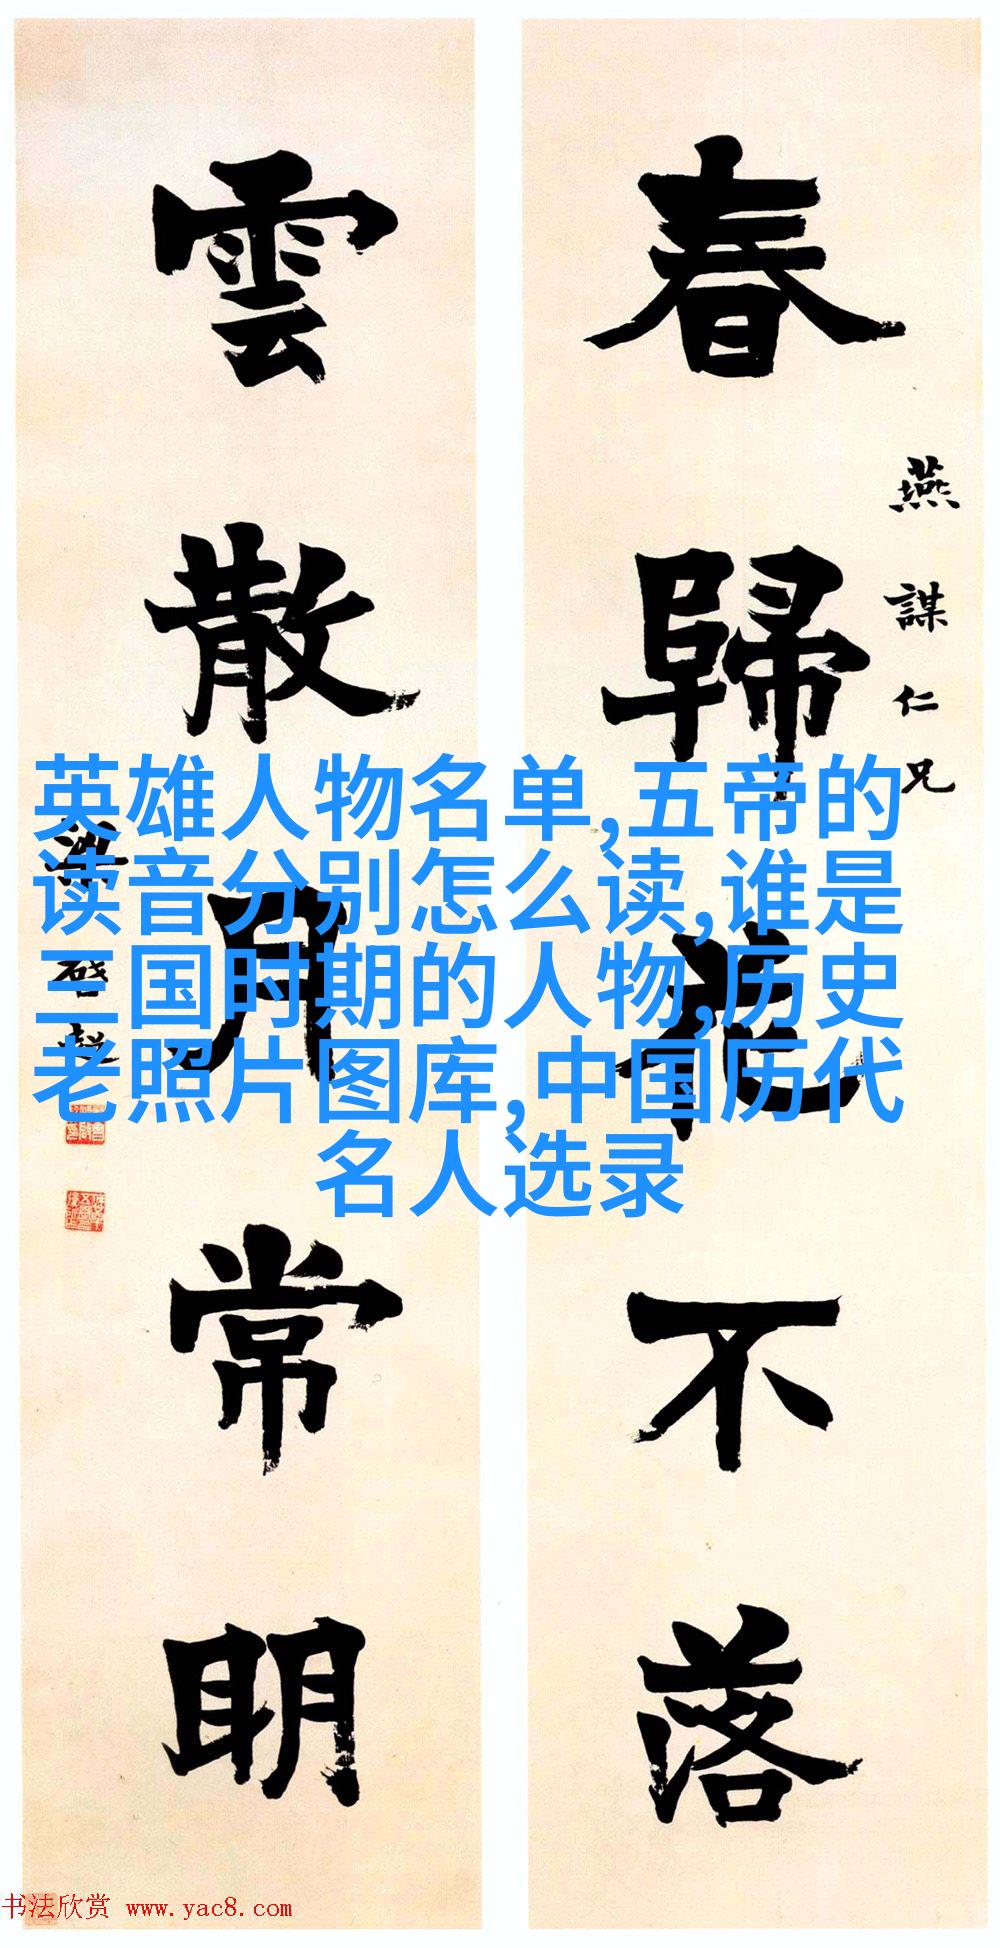 春歸花不落
燕謀仁兄
雲散月常明
梁啓超
英雄人物名单,五帝的
读音分别怎么读,谁是
三国时期的人物,历史
老照片图库,中国历代
名人选录
书法欣赏 www.yac8.com